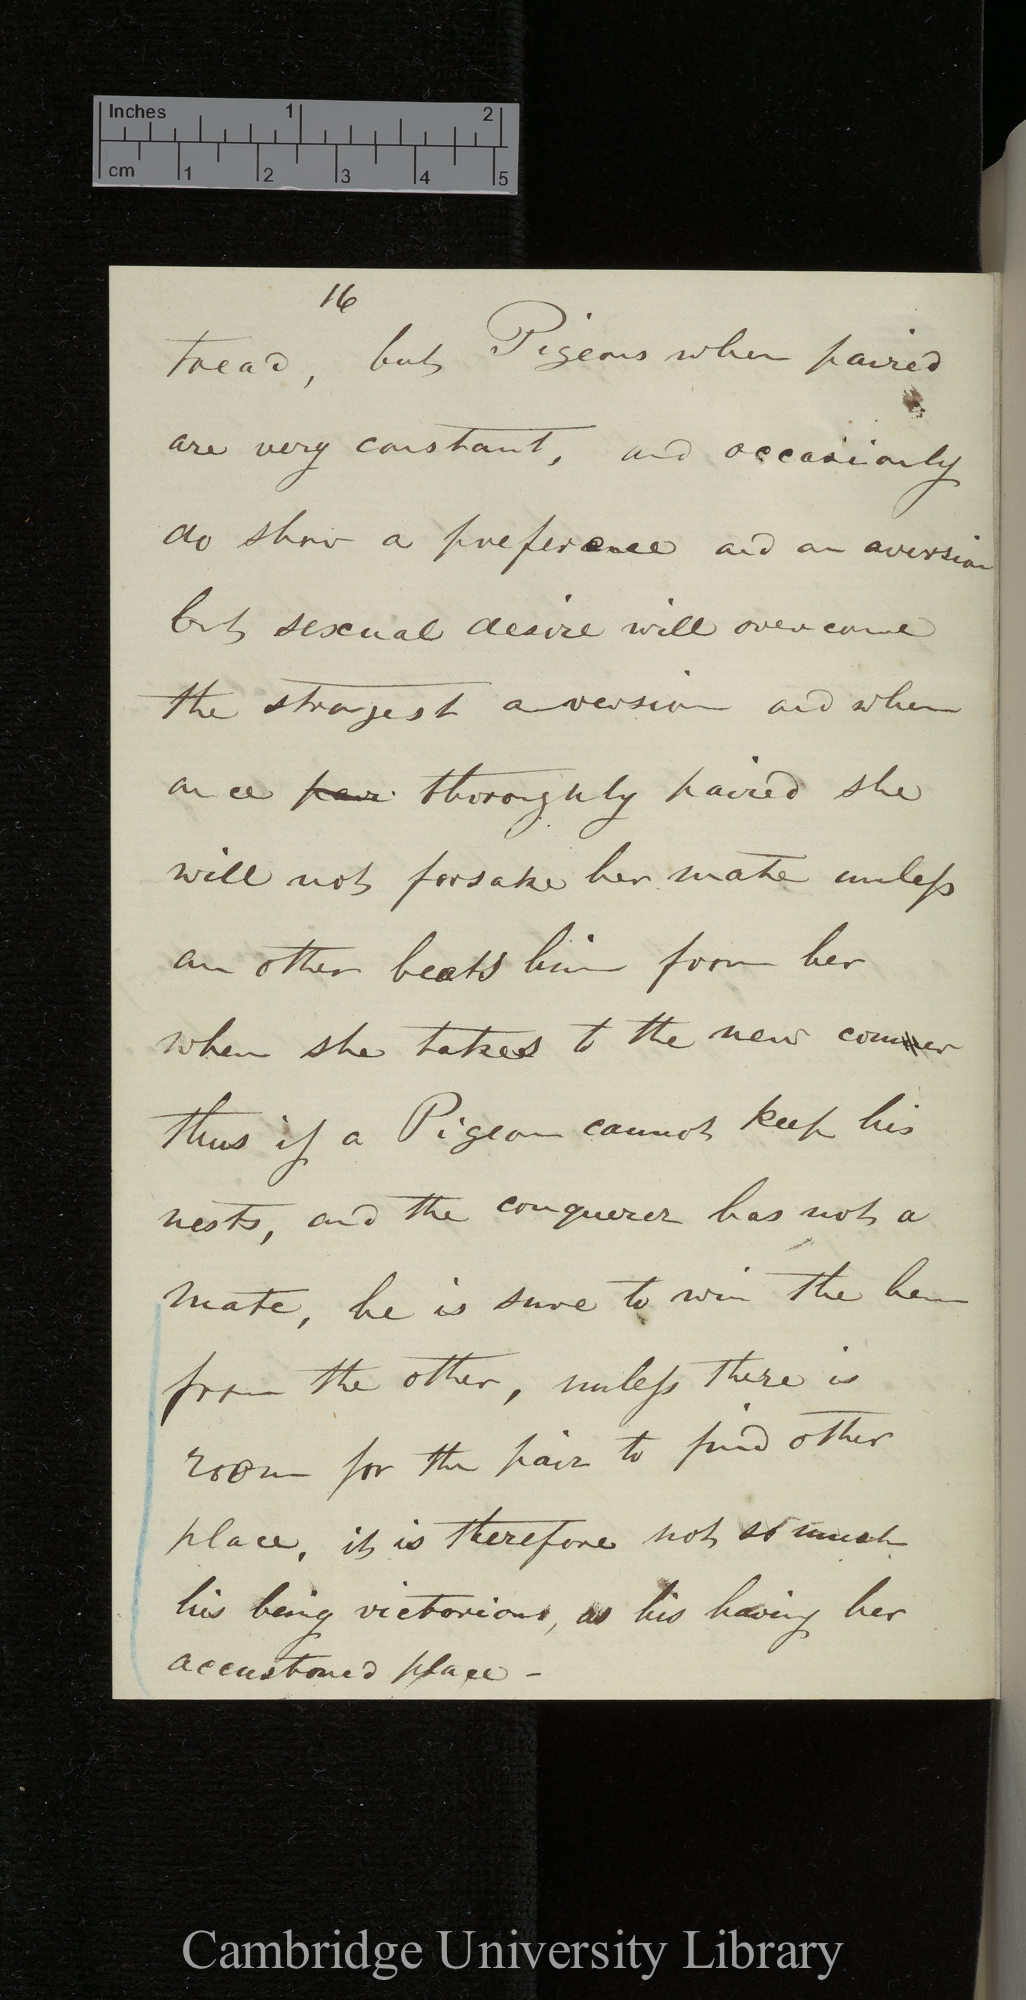 Inches 1 2
cm 1 2 3 4 5
16
tread, but Pigeons when paired
are very constant, and occasionly
do show a preference and an aversion
but sexual desire will overcome
the strongest aversion and when
once pair thoroughly paired she
will not forsake her mate unless
an other beats him from her
when she takes to the new commer
thus if a Pigeon cannot keep his
nests, and the conquerer has not a
mate, he is sure to win the hen
from the other, unless there is
room for the pair to find other
place, it is therefore not so much
his being victorious, as his having her
accustomed place -
Cambridge University Library